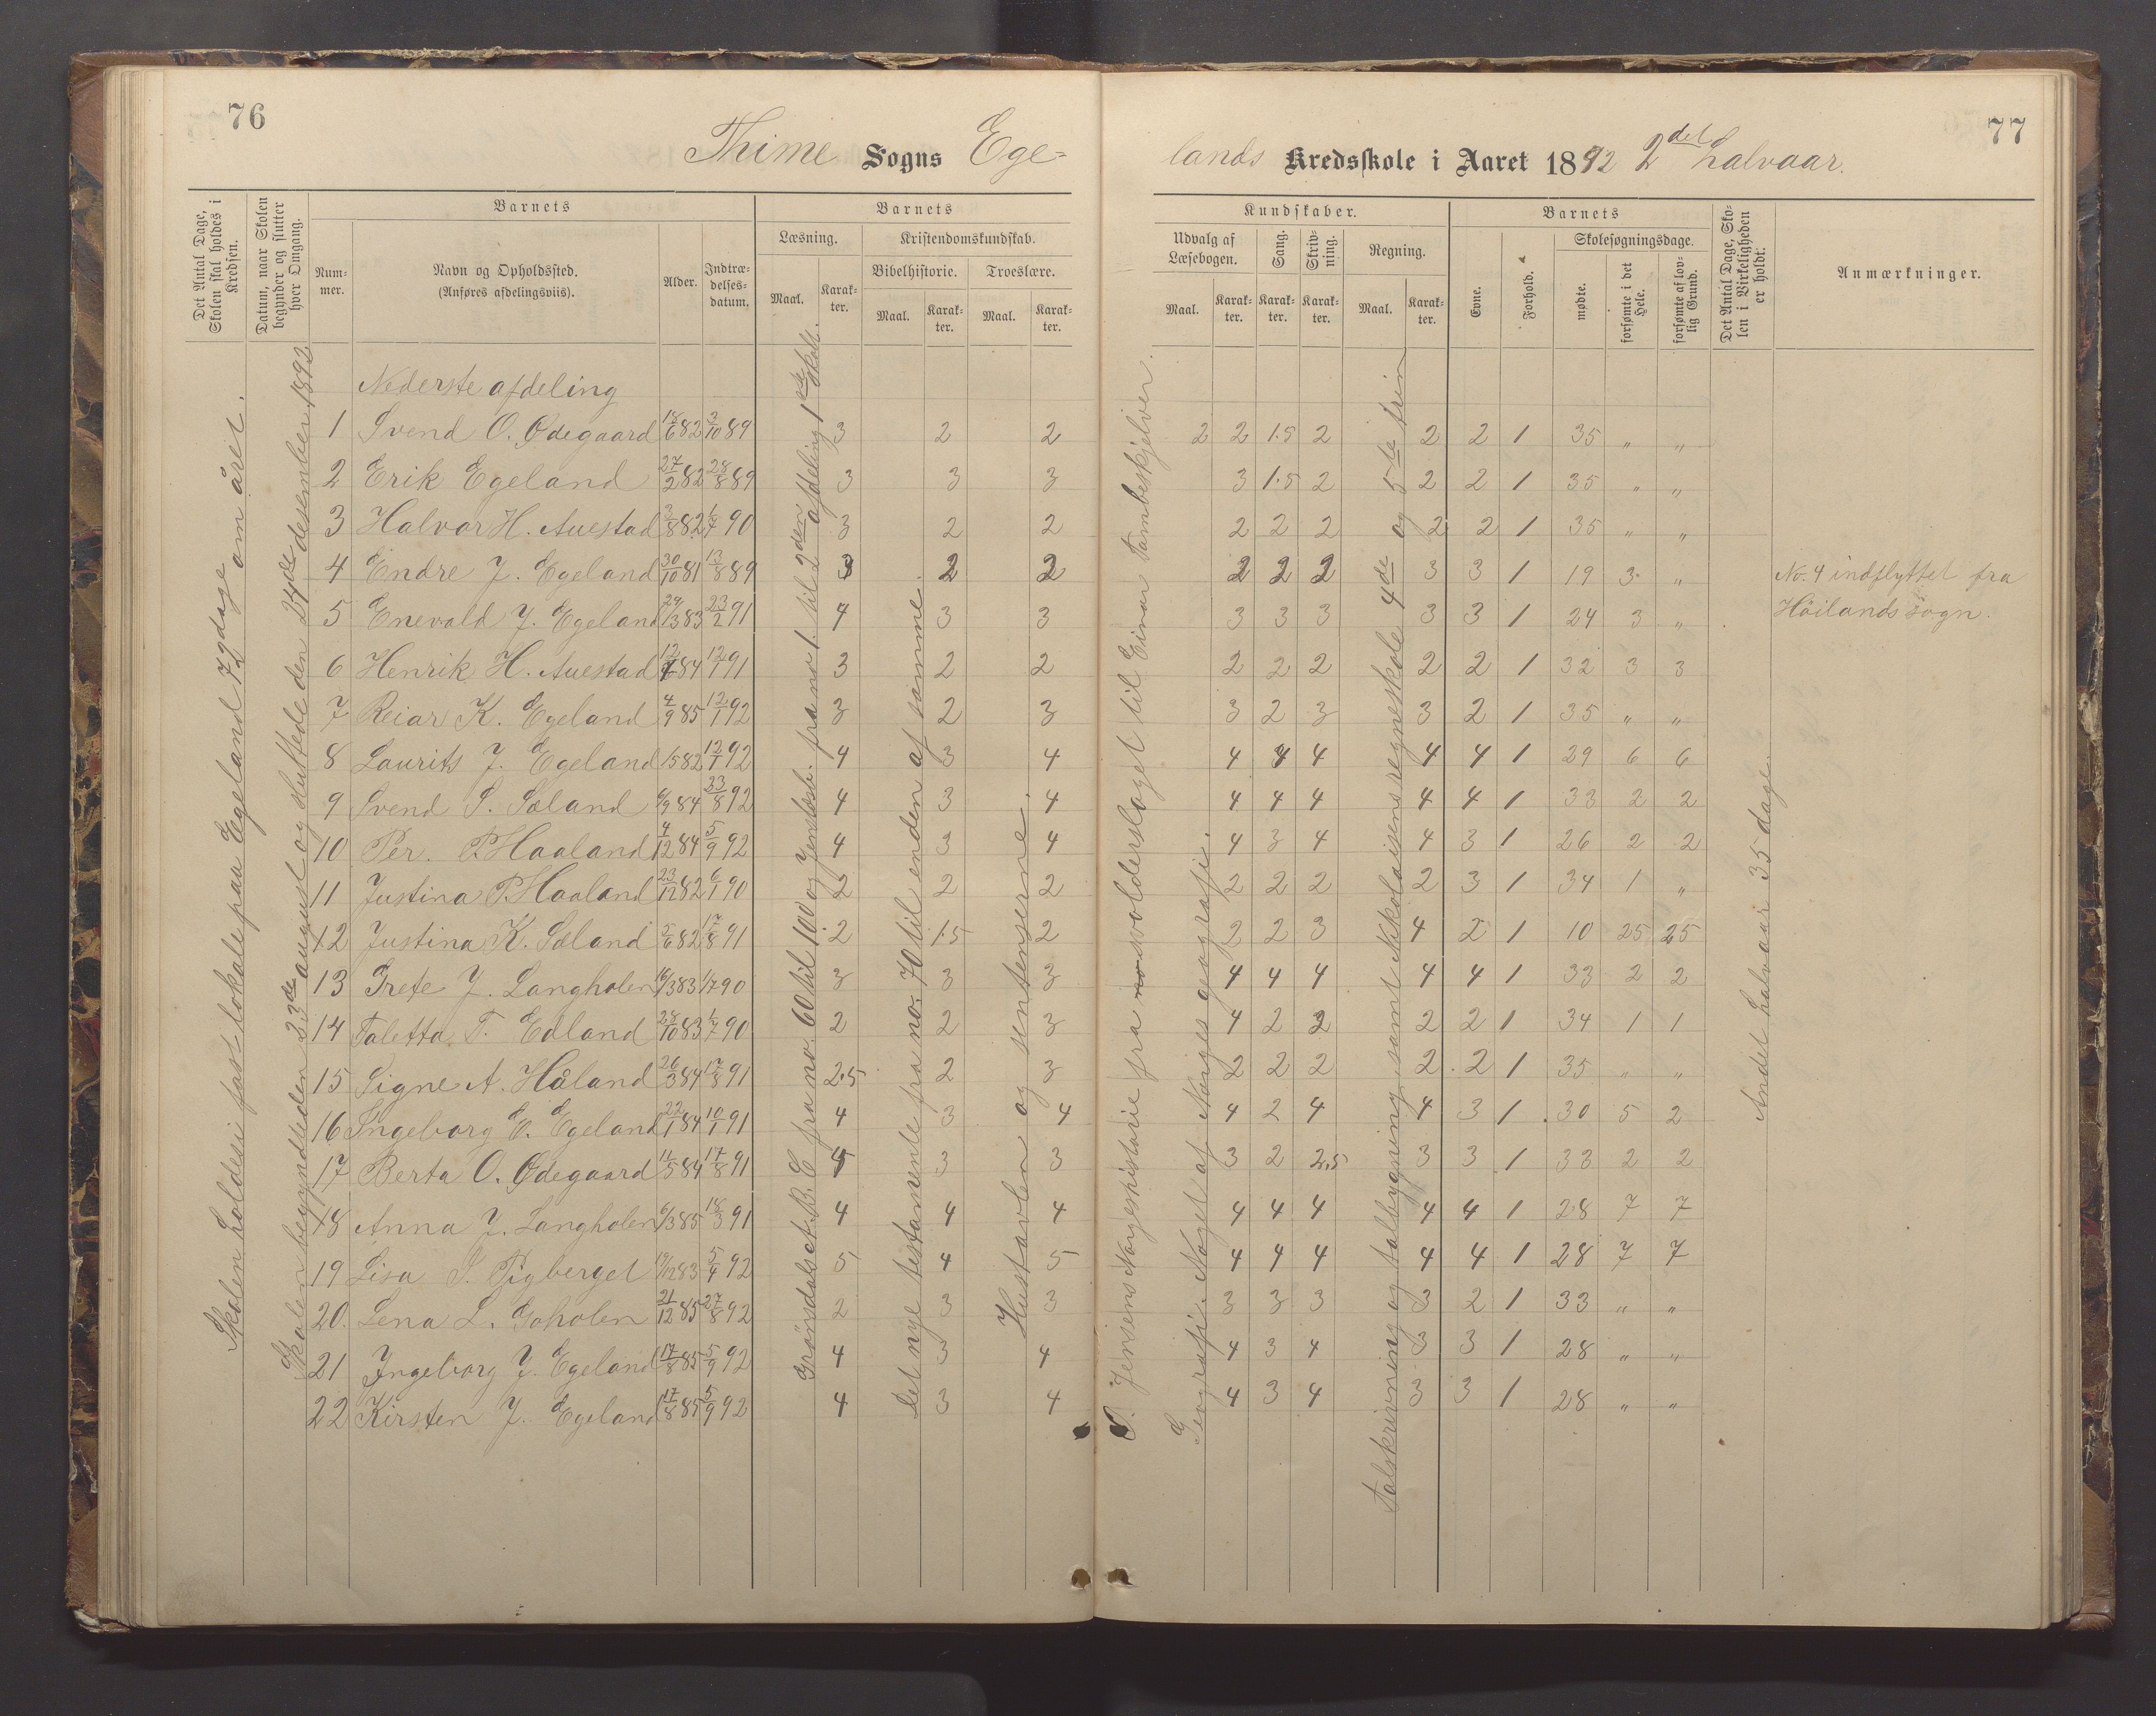 76
Thime Sogns Ege-
Det Antal Dage, Skolen skal holdes i Kredsen.
Datum, naar Skolen begynder og slutter hver Omgang.
Barnets
Num-mer.
Navn og Opholdssted.
(Anføres afdelingsviis).
Alder.
Indtræ-delses-datum.
Barnets
Læsning.
Maal.
Karak-ter.
Kristendomskundskab.
Bibelhistorie.
Troeslære.
Maal.
Karak-ter.
Maal.
Karak-ter.
Skolen holdes i fast lokale paa Egeland 72 dage om året.
Skolen begyndte den 23de august og sluttede den 24de desember 1892
Nederste afdeling
1 Svend O. Ødegaard 18/6 82 3/10 89 3 2 2
2 Erik Egeland 27/2 82 28/8 89 3 3 3
3 Halvor H. Auestad 3/8 82 1/7 90 3 2 2
4 Endre J. Egeland 30/10 81 13/8 89 3 2 2
5 Enevald J. Egeland 29/3 83 23/2 91 4 3 3
6 Henrik H. Auestad 84 12/1 91 3 2 2
7 Reiar K. Egeland 4/9 85 12/1 92 3 2 3
8 Laurits J. Egeland 82 12/1 92 4 3 4
9 Svend S. Sæland 6/9 84 23/8 92 4 3 4
10 Per. P. Haaland 4/12 84 5/9 92 4 3 4
11 Justina P. Haaland 23/12 82 6/1 90 2 2 2
12 Justina K. Sæland 5/6 82 17/8 91 2 1.5 2
13 Grete J. Langholen 16/3 83 1/7 90 3 3 3
14 Taletta T. Edland 28/10 83 1/7 90 2 2 3
15 Signe A. Håland 26/3 84 17/8 91 2.5 2 3
16 Ingeborg E. Egeland 22/1 84 10/1 91 4 3 4
17 Berta O. Ødegaard 11/5 84 17/8 91 4 3 3
18 Anna J. Langholen 6/3 85 18/3 91 4 4 4
19 Lisa S. Tigberget 19/12 83 5/4 92 5 4 5
20. Lena L. Goholen 21/12 85 27/8 92 2 3 3
21 Ingeborg J. Egeland 17/8 85 5/9 92 4 3 4
22 Kirsten J. Egeland 17/8 85 5/9 92 4 3 4
Grøndals A.B.C fra no. 60 til 100 og Jens læseb. fra no 1. til 2den afdeling 1ste skole.
Det nye testamente fra no. 70 til enden af samme
Hustavlen og sentenserne.
77
lands Kredsskole i Aaret 1892 2det halvaar.
Kundskaber.
Udvalg af Læsebogen.
Maal.
Karak-ter.
Sang.
Karak-ter.
Skriv-ning.
Karak-ter.
Regning.
Maal.
Karak-ter.
Barnets
Evne.
Forhold.
Skolesøgningsdage.
mødte.
forsømte i det Hele.
forsømte af lov-lig Grund.
Det Antal Dage, Sko-len i Virkeligheden er holdt:
Anmærkninger.
2 2 1.5 2 2 2 1 35 " "
3 1.5 2 2 2 1 35 " "
2 2 2 2 2 1 35 " "
2 2 2 3 3 1 19 3 " No. 4 indflyttet fra
3 3 3 3 3 1 24 3 " Höilands sogn.
2 2 2 2 2 1 32 3 3
3 2 3 3 2 1 35 " "
4 4 4 4 4 1 29 6 6
4 4 4 4 4 1 33 2 2
4 3 4 4 3 1 26 2 2
2 2 2 2 3 1 34 1 "
2 2 3 4 2 1 10 25 25
4 4 4 4 4 1 33 2 2
4 2 2 2 2 1 34 1 1
2 2 2 2 2 1 35 " "
4 2 4 4 3 1 30 5 2
3 2 2.5 3 3 1 33 2 2
4 4 4 4 4 1 28 7 7
4 4 4 4 4 1 28 7 7
3 3 3 3 2 1 33 " "
4 3 4 3 3 1 28 " "
4 3 4 3 3 1 28 " "
O. Jensens Norgeshistorie fra no volderslaget til Einar Tambeskjelver.
Geografi. Noget af Norges geografi.
Talskrivning og talbygning samt Nikolaisens regneskole 4de og 5te trin
Andet halvaar 35 dage.